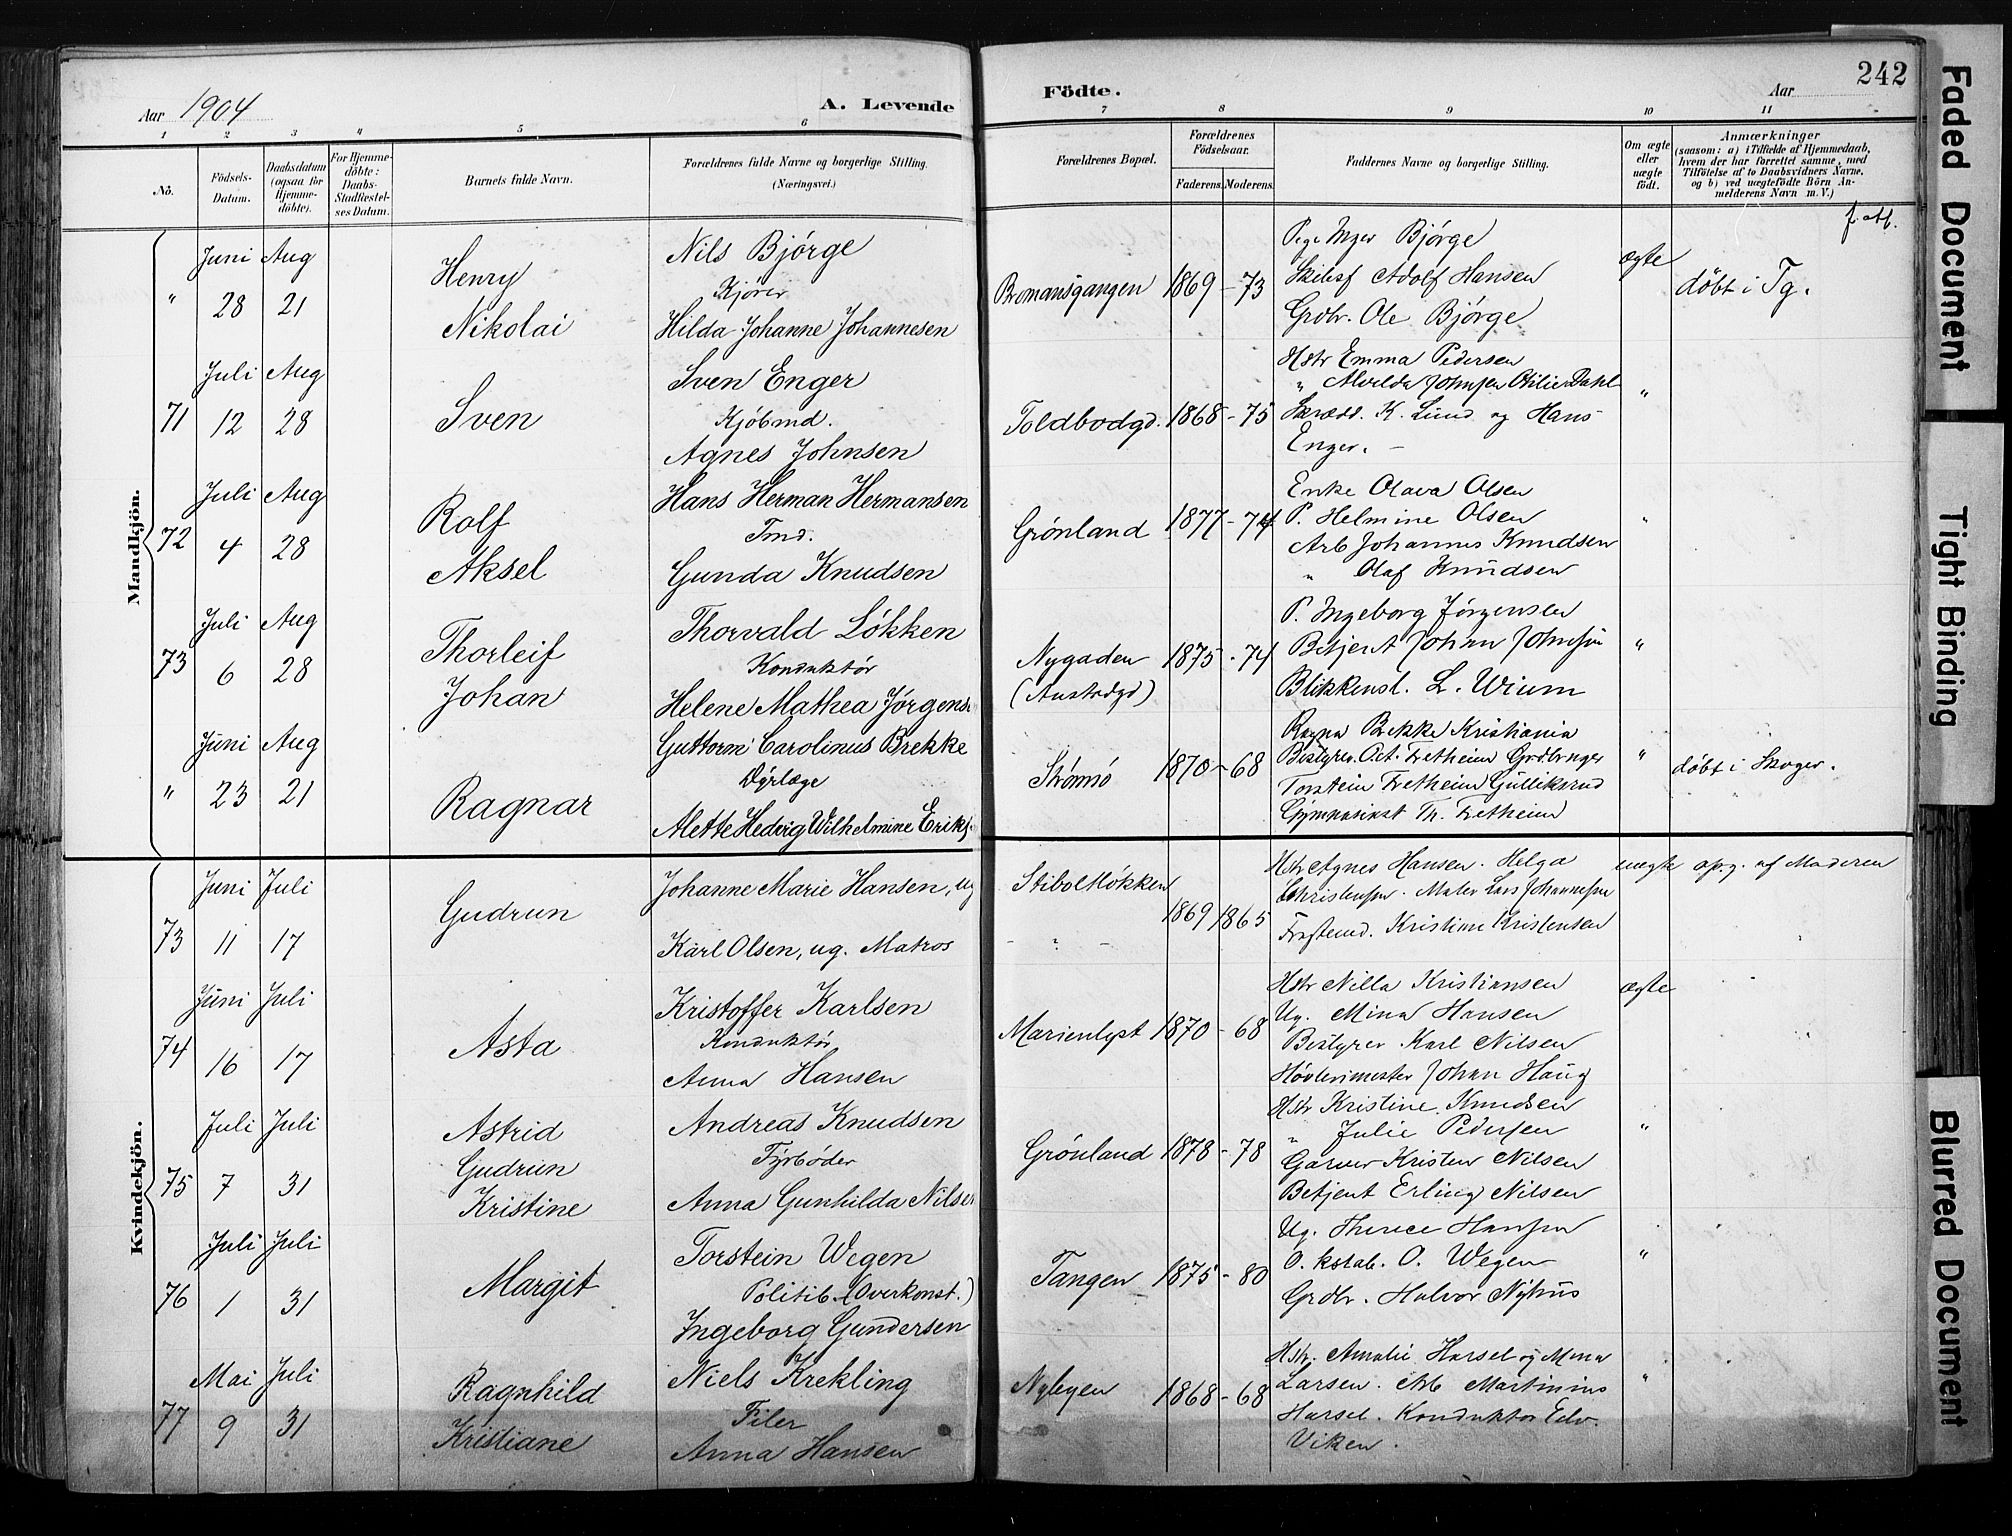 242
Aar 1904
A. Levende
Födte.
Aar
1 2 3 4 5 6 7 8 9 10 11
No.
Födsels-
Datum.
Daabsdatum
(ogsaa for
Hjemme-
döbte).
For Hjemme-
döbte:
Daabs-
Stadfæstel-
ses Datum.
Barnets fulde Navn.
Forældrenes fulde Navne og borgerlige Stilling.
(Næringsvei.)
Forældrenes Bopæl.
Forældrenes
Födselsaar.
Faderens. Moderens.
Faddernes Navne og borgerlige Stilling.
Om ægte
eller
uægte
födt.
Anmærkninger
(saasom: a) i Tilfælde af Hjemmedaab,
hvem der har forrettet samme, med
Tilföielse af to Daabsvidners Navne.
og b) ved uægtefödte Börn An-
melderens Navn m. V.)
Mandkjön.
" Juni 28 Aug 21
Henry
Nikolai
Nils Bjørge
Kjører
Hilda Johanne Johannesen
Bromansgangen 1869 - 73
Pige Inger Bjørge
Adolf Hansen
Grdbr. Ole Bjørge
ægte
døbt i Tg.
71 Juli 12 Aug 28
Sven
Sven Enger
Kjöbmd.
Agnes Johnsen
Toldbodgd. 1868 - 75
Hstr Emma Pedersen
" Alvilda Johnsen Otilie Dahl
Skrædd. K. Lund og Hans
Enger. -
"
72 Juli 4 Aug 28
Rolf
Aksel
Hans Herman Hermansen
Tmd.
Gunda Knudsen
Grønland 1877 - 74
Enke Olava Olsen
P. Helmine Olsen
Arb Johannes Knudsen
" Olaf Knudsen
"
73 Juli 6 Aug 28
Thorleif
Johan
Thorvald Løkken
Konduktør
Helene Mathea Jørgens
Nygaden
1875 - 74
P. Ingeborg Jørgensen
Betjent Johan Johnsen
Blikkensl. L. Wium
"
" Juni 23 Aug 21
Ragnar
Guttorm Carolinus Brekke
Dyrlæge
Alette Hedvig Wilhelmine Eriks
Strømsø 1870 - 68
Ragna Brekke Kristiania
Bestyrer Oct. Fretheim Grdbruger
Torstein Fretheim Gulliksrud
Gymnasiast Th. Fretheim
"
døbt i Skoger.
Kvindekjön.
73 Juni 11 Juli 17
Gudrun
Johanne Marie Hansen, ug
Karl Olsen, ug. Matros
Stiboltløkken
- " -
1869 1865
Hstr Agnes Hansen. Helga
Christensen. Maler Lars Johannesen
Kristian Kristensen
uægte
opg. af Moderen
74 Juni 16 Juli 17
Asta
Kristoffer Karlsen
Konduktør
Anna Hansen
Marienlyst 1870 - 68
Hstr Nilla Kristiansen
Ug. Mina Hansen
Bestyrer Karl Nilsen
Høvlerimester Johan Haug
ægte
75 Juli 7 Juli 31
Astrid
Gudrun
Kristine
Andreas Knudsen
Fyrbøder
Anna Gunhilda Nilsen
Grönland 1878 - 78
Hstr Kristine Knudsen
" Julie Pedersen
Garver Kristen Nilsen
Betjent Erling Nilsen
"
76 Juli 1 Juli 31
Margit
Torstein Wegen
Politib. (Overkonst.)
Ingeborg Gundersen
Tangen 1875 - 80
Ug. Therece Hansen
O. kstab. O. Wegen
Grdbr. Halvor Nyhus
"
77 Mai 9 Juli 31
Ragnhild
Kristiane
Niels Krekling
Filer
Anna Hansen
Nybyen 1868 - 68
Hstr. Amalie Harsel og Mina
Larsen. Arb Martinius
Harsel. Konduktør Edv.
Viken.
"
Faded Document
Tight Binding
Blurred Document